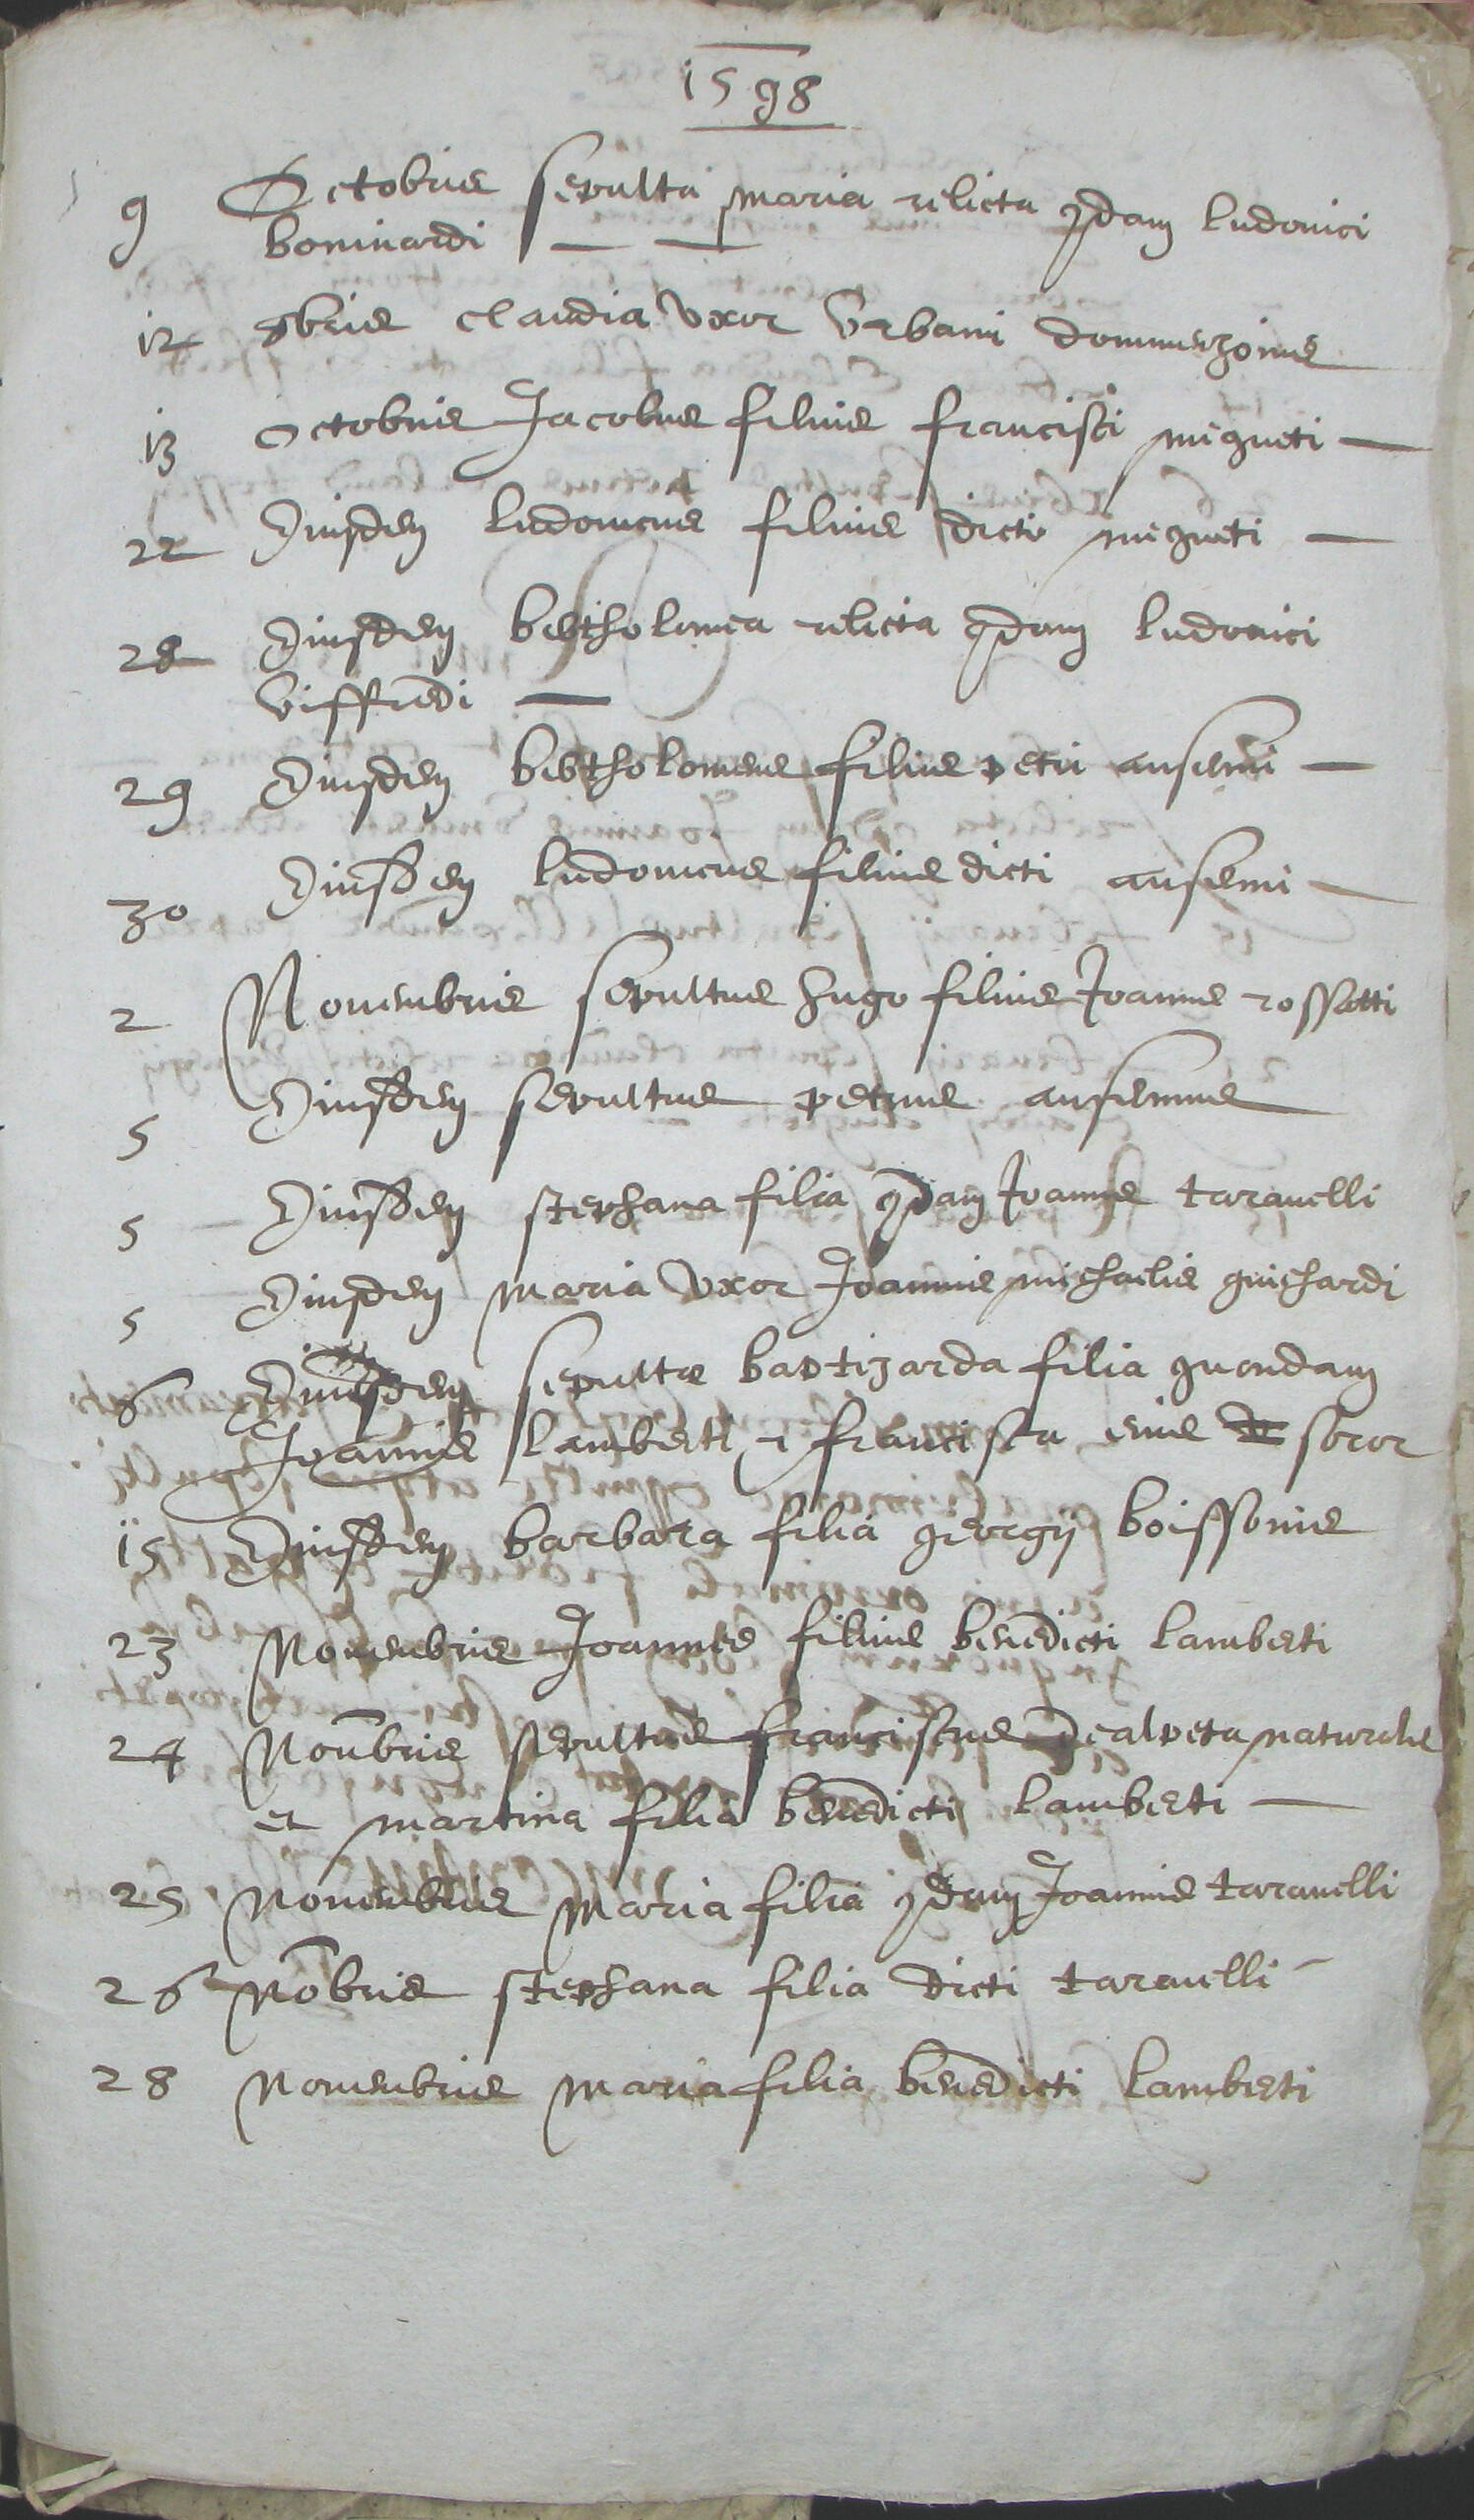 1598
9 Octobris sepulta maria relicta qdam ludovici
boninardi
12 8bris claudia uxor Urbani
13 octobris Jacobus filius francisci migueti
22 Eiusdem ludovicus filius dicti migueti
28 Eiusdem bertholomea relicta qdam ludovici
Viffredi
29 Eiusdem bertholomeus filius petri anselmi
30 Eiusdem ludovicus filius dicti anselmi
2 Novembris sepultus hugo filius Joannis rossetti
5 Eiusdem sepultus petrus anselmus
5 Eiusdem stephana filia qdam Joannis taravelli
5 Eiusdem maria uxor Joannis michaelis guichardi
6 Eiusdem sepultæ baptizarda filia quondam
Joannis lamberti et francisca eius soror
15 Eiusdem barbara filia georgij boissonis
23 Novembris Joannes filius benedicti lamberti
24 Novbris sepultus franciscus dealpeta naturalis
et martina filia benedicti lamberti
25 Novembris maria filia qdam Joannis taravelli
26 Nobris stephana filia dicti taravelli
28 Novembris maria filia benedicti lamberti